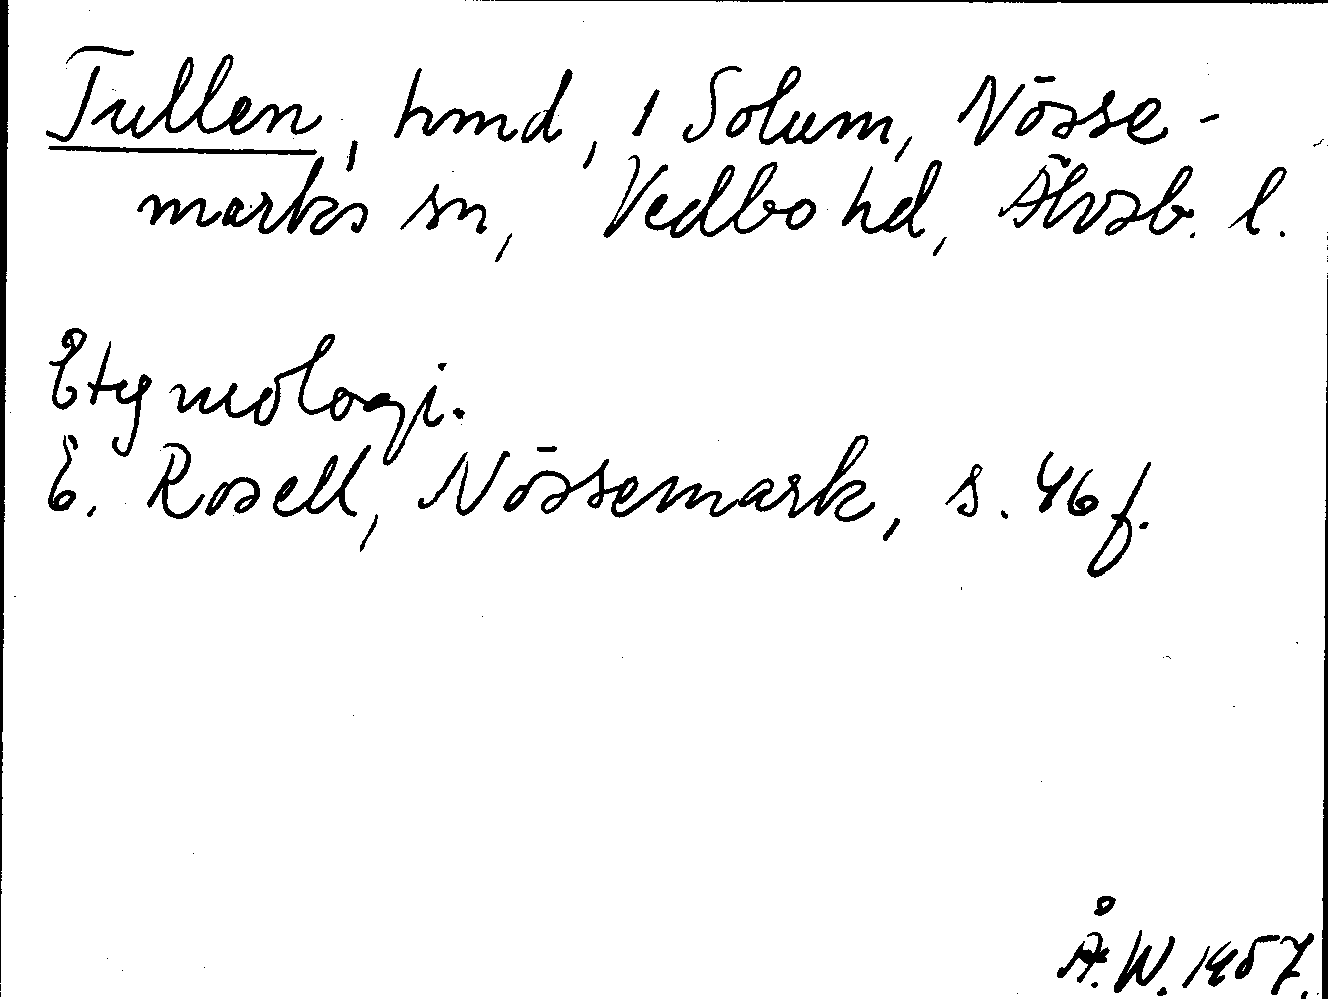 Tullen, hmd, 1 Solum, Nösse-
marks sn, Vedbo hd, Älvsb. l.
Etymologi.
E. Rosell, Nössemark, s. 46 f.
Å. W. 1957.